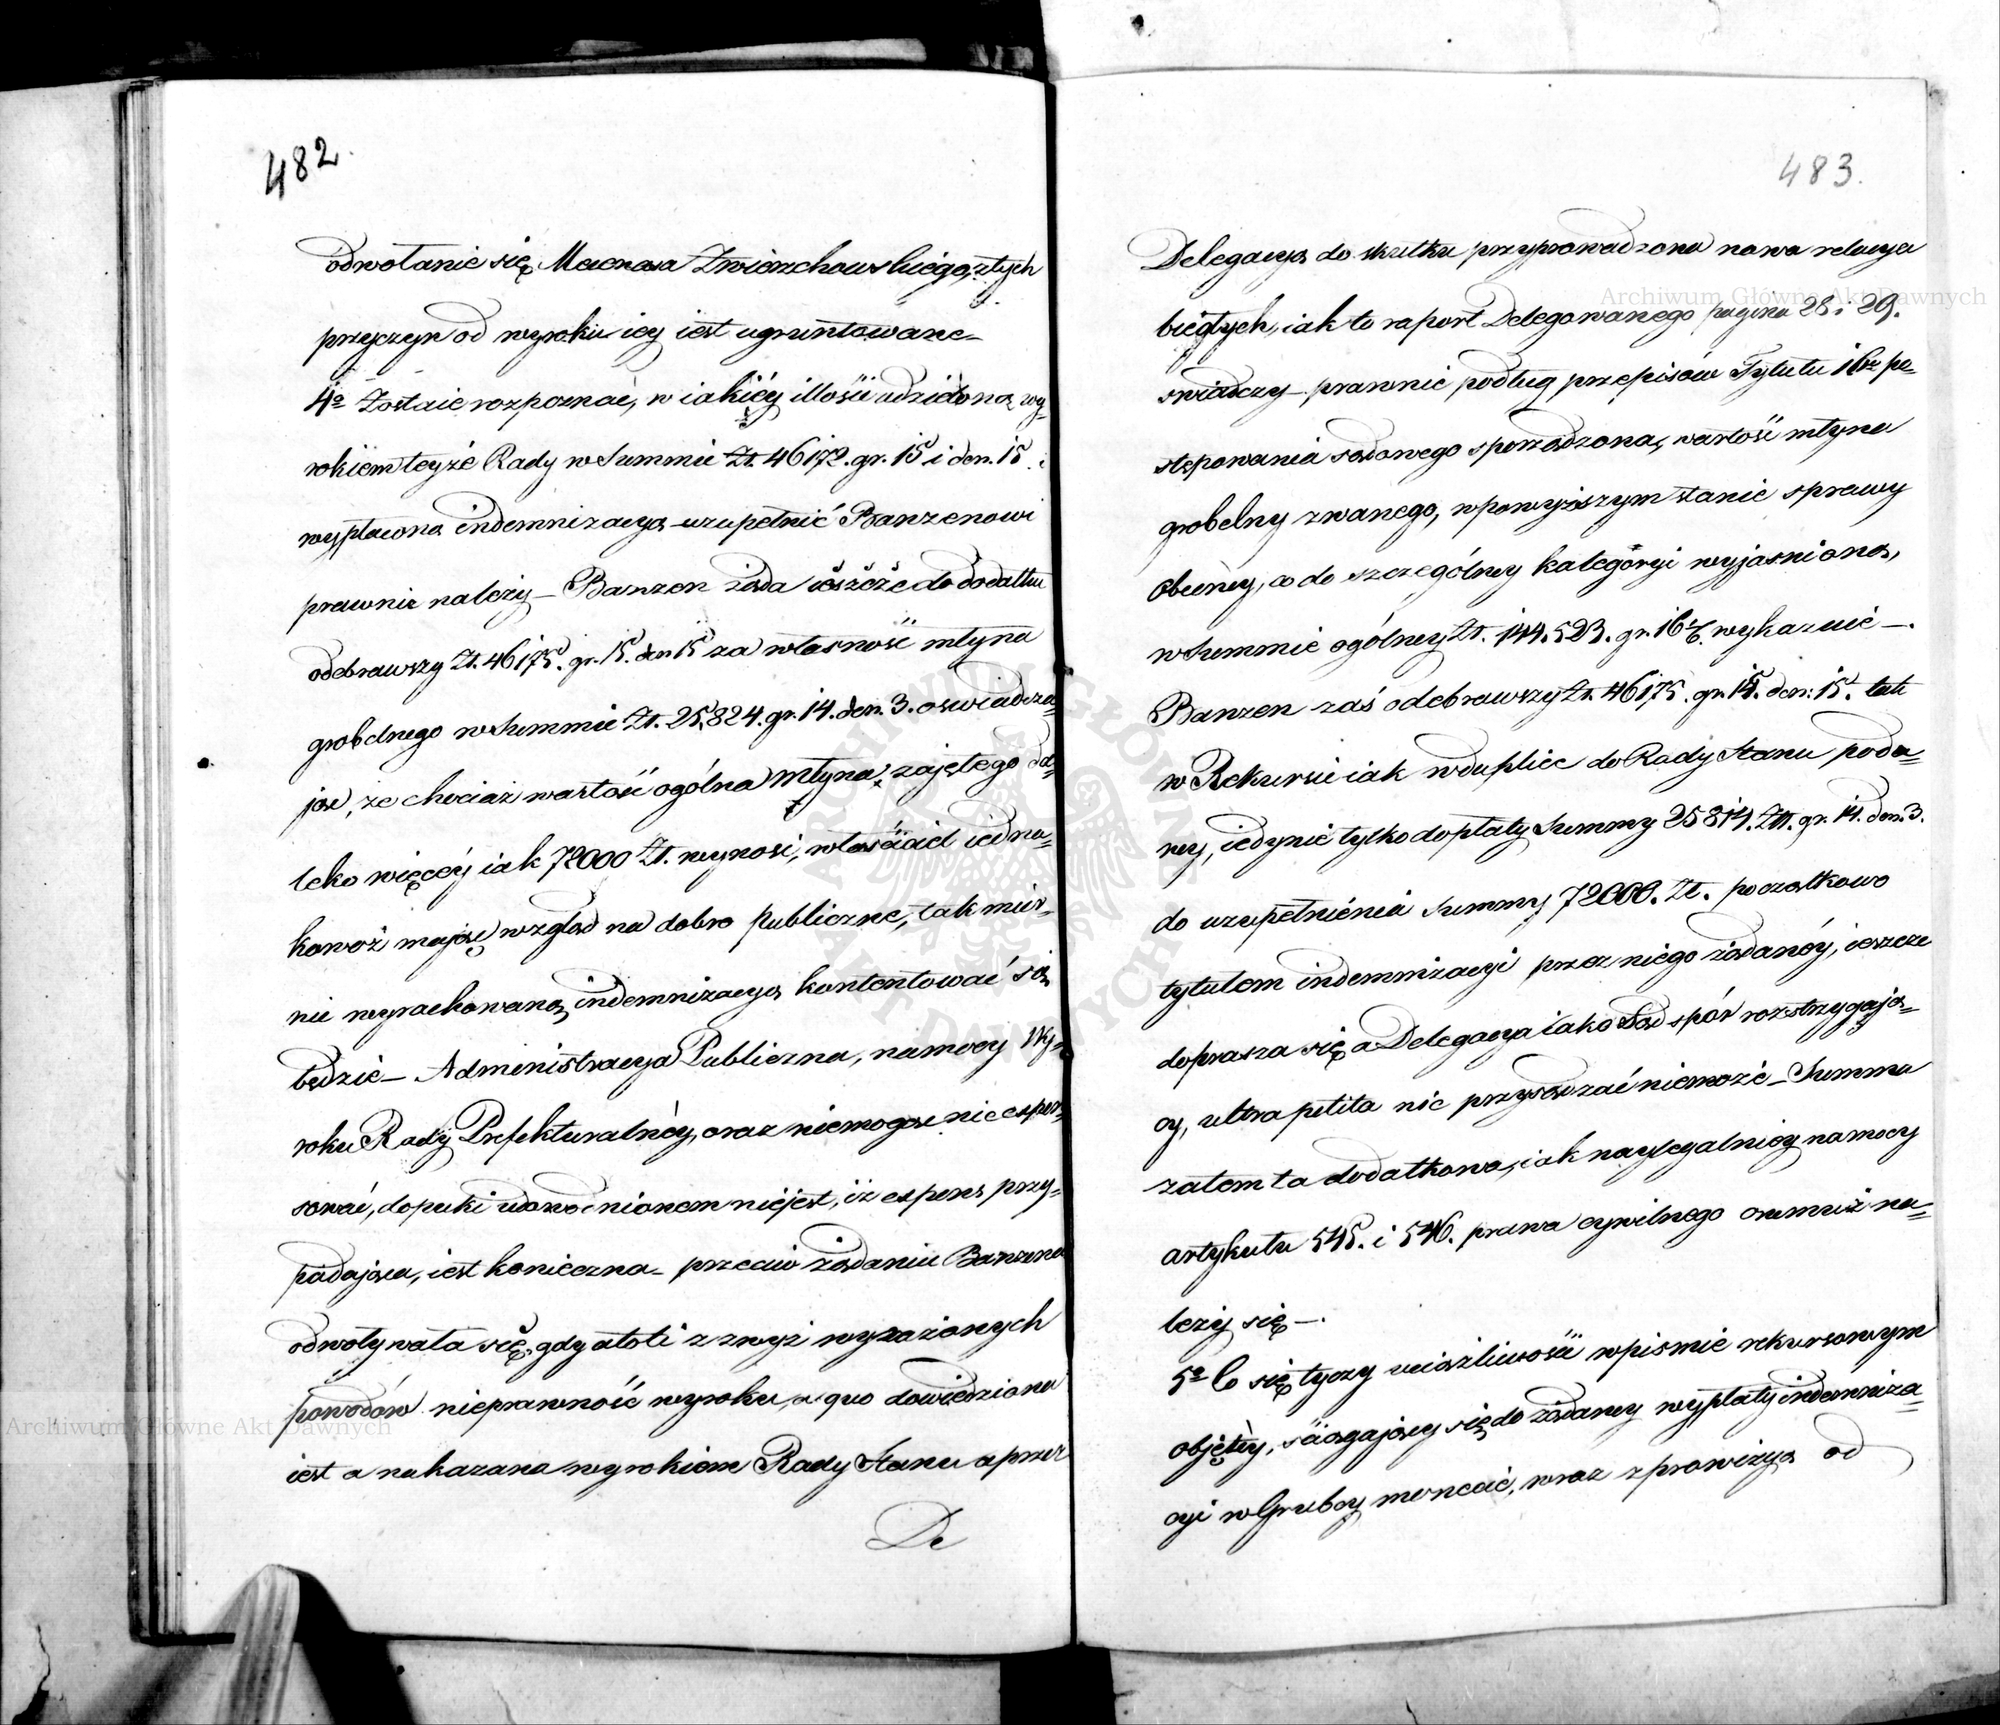 482.
odwołanie się Mecenasa Zwierzchowskiego, z tych
przyczyn od wyroku iey iest ugruntowane-
4o Zostaie rozpoznać, w iakiéy illości udzieloną wy=
rokiem teyże Rady w Summie Zł. 46172. gr. 15 i den. 15.
wypłaconą indemnizacyą uzupełnić Banzenowi
prawnie należy - Banzen żąda ieszcze do dodatku
odebrawszy Zł. 46175. gr. 15. den 15 za własność młyna
grobelnego w Summie Zł. 25,824. gr. 14. den. 3. oswiadcza=
iąc, że chociaż wartość ogólna młyna zajętego da=
leko więcéy iak 72000 Zł. wynosi, właściciel iedna=
kowoż mając wzgląd na dobro publiczne, tak mier=
nie wyrachowaną indemnizacyą kontentować się
będzie - Administracya Publiczna, na mocy Wy=
roku Rady Prefekturalnéy, oraz niemogąc nic expen=
sować, dopuki udowodnionem niejest, iż expens przy=
padająca, iest konieczna - przeciw żądaniu Banzena
odwoływała się, gdy atoli z zwyż wyrażonych
powodów nieprawność wyroku, a quo dowiedziona
iest a nakazana wyrokiem Rady Stanu a przez
De
483.
Delegacyą do skutku przyprowadzona nowa relacya
biegłych, iak to raport Delegowanego pagina 28 i 29.
swiadczy - prawnie podług przepisów Tytułu 16go po=
stępowania sądowego sporządzona, wartość młyna
grobelny zwanego, w powyższym stanie sprawy
obecney, co do szczególney kategoryi wyjasnioną,
w Summie ogólney Zł. 144.523. gr. 16 wykazuie -.
Banzen zaś odebrawszy Zł. 46175. gr. 15. den: 15. tak
w Rekursie iak w duplice do Rady Stanu poda=
ney, iedynie tylko dopłaty Summy 25814. Zł. gr. 14. den. 3.
do uzupełnienia Summy 72000. Zł. początkowo
tytułem indemnizacyi przez niego żądanéy, ieszcze
doprasza się a Delegacya iako Sąd spór rozstrzygają=
cy, ultra petita nic przysądzać niemoże - Summa
zatem ta dodatkowa, iak naylegalniey na mocy
artykułu 545. i 546. prawa cywilnego onemuż na=
leży się -.
5o Co się tyczy uciążliwości w pismie rekursowym
objętéy, sciągającey się do żądaney wypłaty indemniza=
cyi w Grubey monecie, wraz z prowizyą od
Archiwum Główne Akt Dawnych
Archiwum Główne Akt Dawnych
ARCHIWUM GŁÓWNE AKT DAWNYCH